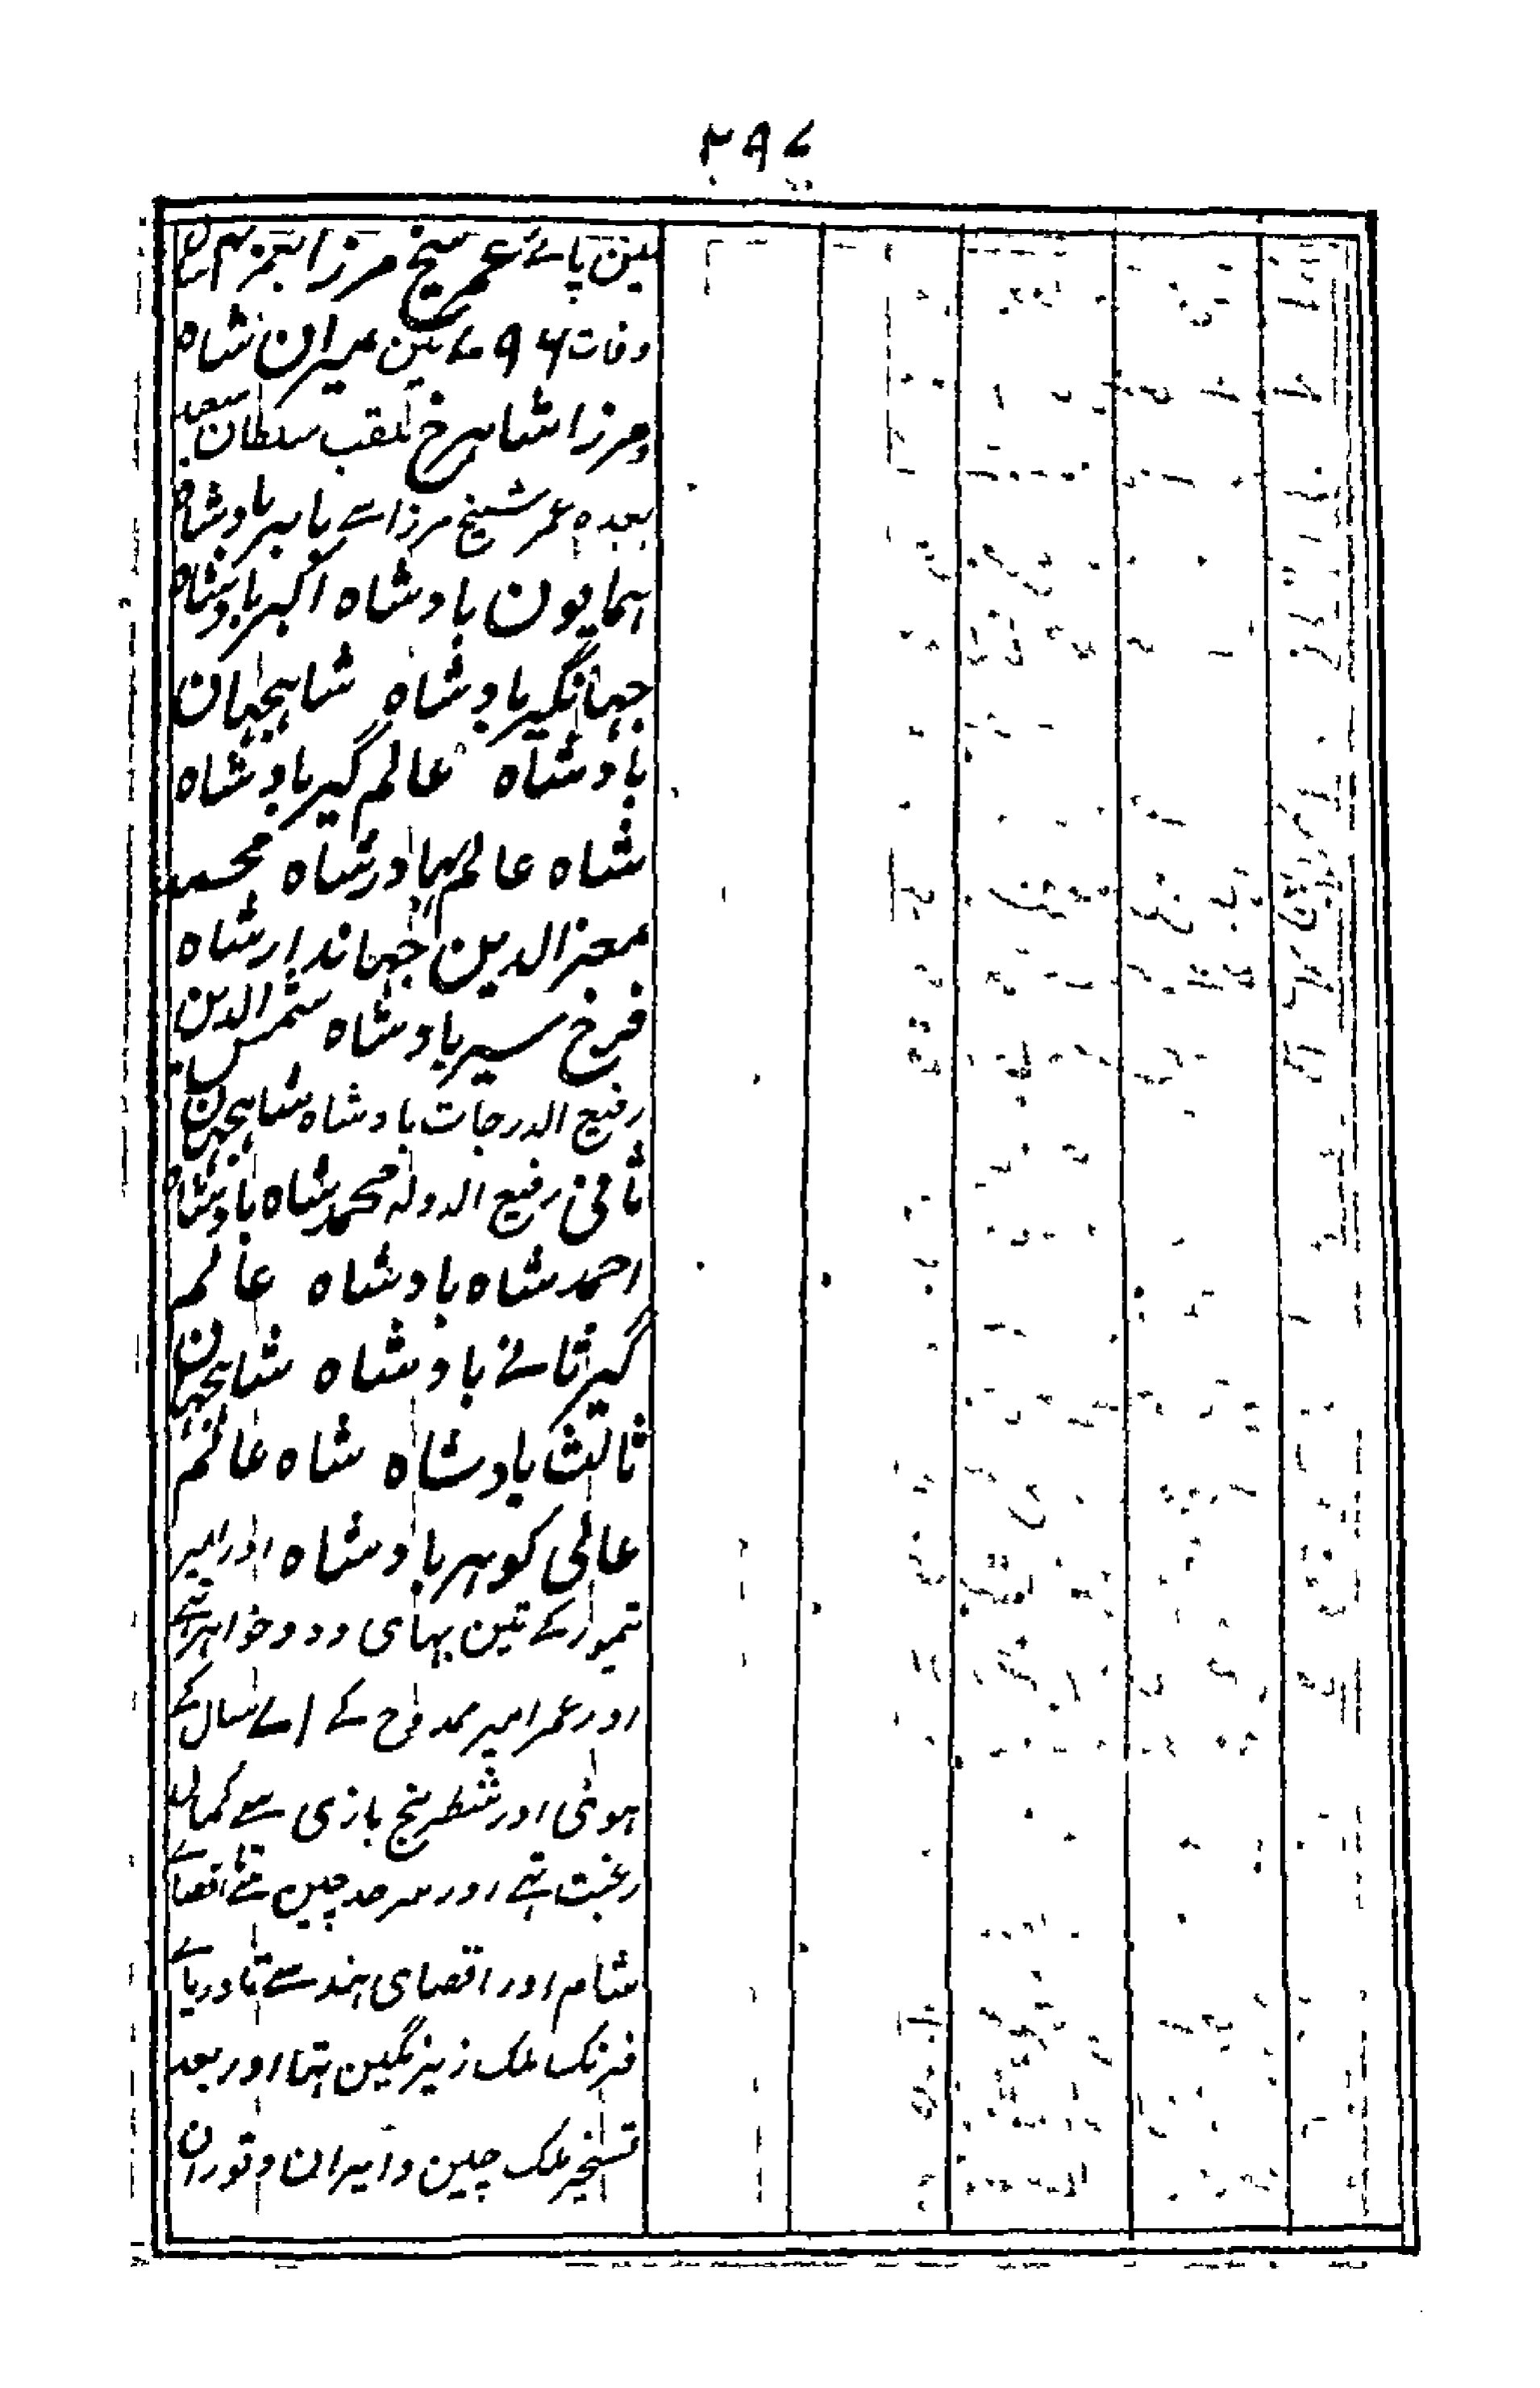 ۲۹۷
مین پائے عمر شیخ مرزا بعمر ۴۰ سال
وفات ۷۹۶ مین میران شاہ
ومرزا شاہرخ ملقب سلطان سعید
بعدہ عمر شیخ مرزا سے بابر بادشاہ
ہمایون بادشاہ اکبر بادشاہ
جہانگیر بادشاہ شاہجہان
بادشاہ عالم گیر بادشاہ
شاہ عالم بہادر شاہ محمد
معز الدین جہاندار شاہ
فرخ سیر بادشاہ شمس الدین
رفیع الدرجات بادشاہ شاہجہان
ثانی رفیع الدولہ محمد شاہ بادشاہ
احمد شاہ بادشاہ عالم
گیر ثانے بادشاہ شاہجہان
ثالث بادشاہ شاہ عالم
عالی گوہر بادشاہ اور امیر
تیمور کے تین بہای ودو خواہر تہے
اور عمر امیر ممدوح کے ۷۱ سال کے
ہوئی اور شطرنج بازی سے کمال
رغبت تہے اور سرحد چین سے تا اقصاے
شام اور اقصای ہند سے تا دریاے
فرنک ملک زیر نگین تہا اور بعد
تسخیر ملک چین و ایران و توران